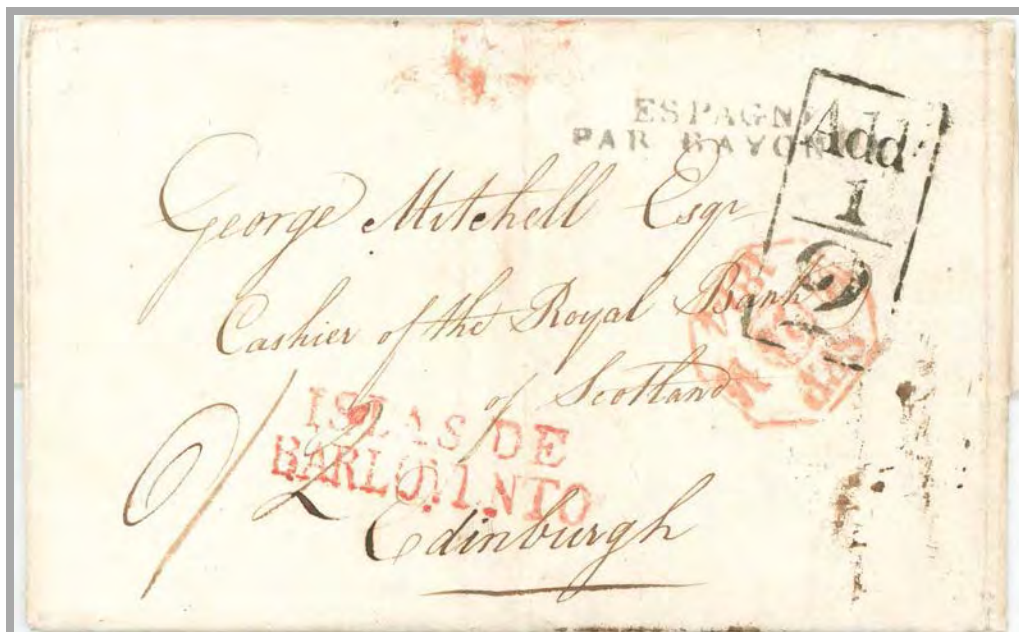 ESPAGN
PAR BAYON
Add
1
9
George Mitchell Esqr
Cashier of the Royal Bank
of Scotland
ISLAS DE
BARLOVINTO
/2
Edinburgh